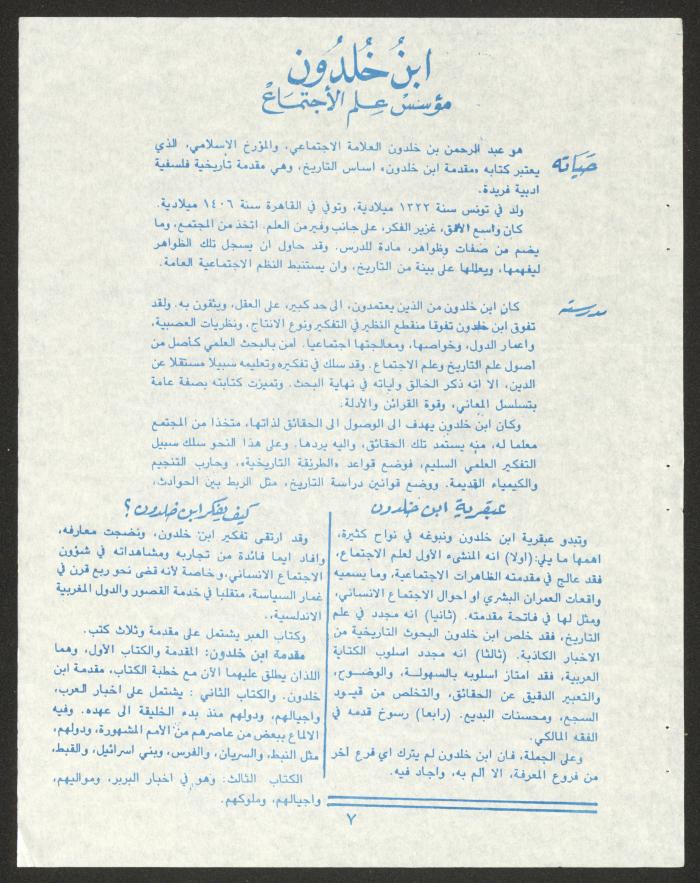 ابنُ خُلدُون
مؤسسْ عِلم الأجتمَاعْ
حَيَاته
هو عبد الرحمن بن خلدون العلامة الاجتماعي، والمؤرخ الاسلامي، الذي
يعتبر كتابه «مقدمة ابن خلدون» اساس التاريخ، وهي مقدمة تأريخية فلسفية
ادبية فريدة.
ولد في تونس سنة ١٣٣٢ ميلادية، وتوفي في القاهرة سنة ١٤٠٦ ميلادية.
كان واسع الافق، غزير الفكر، على جانب وفير من العلم. اتخذ من المجتمع، وما
يضم من صفات وظواهر، مادة للدرس. وقد حاول ان يسجل تلك الظواهر
ليفهمها، ويعللها على بينة من التاريخ، وان يستنبط النظم الاجتماعية العامة.
مدرسته
كان ابن خلدون من الذين يعتمدون، الى حد كبير، على العقل، ويثقون به. ولقد
تفوق ابن خلدون تفوقا منقطع النظير في التفكير ونوع الانتاج، ونظريات العصبية،
واعمار الدول، وخواصها، ومعالجتها اجتماعيا. آمن بالبحث العلمي كأصل من
أصول علم التاريخ وعلم الاجتماع. وقد سلك في تفكيره وتعليمه سبيلا مستقلا عن
الدين، الا أنه ذكر الخالق وآياته في نهاية البحث. وتميزت كتابته بصفة عامة
بتسلسل المعاني، وقوة القرائن والأدلة.
وكان ابن خلدون يهدف الى الوصول الى الحقائق لذاتها، متخذا من المجتمع
معلما له، منه يستمد تلك الحقائق، واليه يردها. وعلى هذا النحو سلك سبيل
التفكير العلمي السليم، فوضع قواعد «الطريقة التاريخية»، وحارب التنجيم
والكيمياء القديمة. ووضع قوانين دراسة التاريخ، مثل الربط بين الحوادث،
عبقرية ابن خلدون
وتبدو عبقرية ابن خلدون ونبوغه في نواح كثيرة،
اهمها ما يلي: (اولا) انه المنشىء الأول لعلم الاجتماع،
فقد عالج في مقدمته الظاهرات الاجتماعية، وما يسميه
واقعات العمران البشري او احوال الاجتماع الانساني،
ومثل لها في فاتحة مقدمته. (ثانيا) انه مجدد في علم
التاريخ، فقد خلص ابن خلدون البحوث التاريخية من
الاخبار الكاذبة. (ثالثا) انه مجدد اسلوب الكتابة
العربية، فقد امتاز اسلوبه بالسهولة، والوضوح،
والتعبير الدقيق عن الحقائق، والتخلص من قيود
السجع، ومحسنات البديع. (رابعا) رسوخ قدمه في
الفقه المالكي.
وعلى الجملة، فان ابن خلدون لم يترك اي فرع آخر
من فروع المعرفة، الا ألم به، واجاد فيه.
كيف يفكر ابن خلدون؟
وقد ارتقى تفكير ابن خلدون، ونضجت معارفه،
وافاد ايما فائدة من تجاربه ومشاهداته في شؤون
الاجتماع الانساني، وخاصة لأنه قضى نحو ربع قرن في
غمار السياسة، متقلبا في خدمة القصور والدول المغربية
الاندلسية،.
وكتاب العبر يشتمل على مقدمة وثلاث كتب.
مقدمة ابن خلدون: المقدمة والكتاب الأول، وهما
اللذان يطلق عليهما الآن مع خطبة الكتاب، مقدمة ابن
خلدون. والكتاب الثاني : يشتمل على اخبار العرب،
واجيالهم، ودولهم منذ بدء الخليقة الى عهده. وفيه
الالماع ببعض من عاصرهم من الأمم المشهورة، ودولهم،
مثل النبط، والسريان، والفرس، وبني اسرائيل، والقبط،
الكتاب الثالث: وهو في اخبار البربر، ومواليهم،
واجيالهم، وملوكهم.
٧